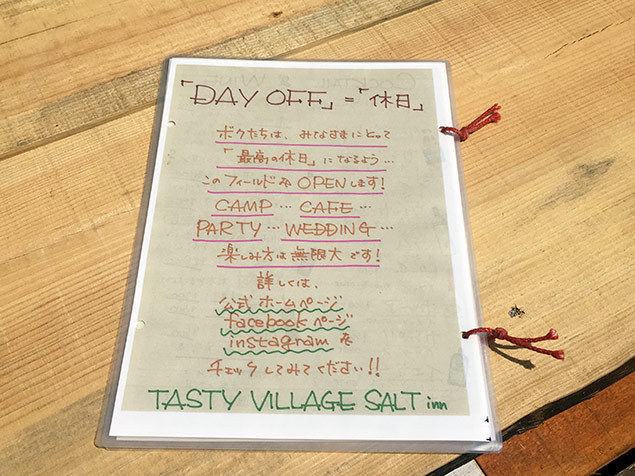 「DAY OFF」=「休日」
ボクたちは、みなさまにとって
「最高の休日」になるよう…
このフィールドをOPENします!
CAMP … CAFE …
PARTY … WEDDING …
楽しみ方は無限大です!
詳しくは、
公式ホームページ
facebookページ
instagram を
チェックしてみてください!!
TASTY VILLAGE SALT inn